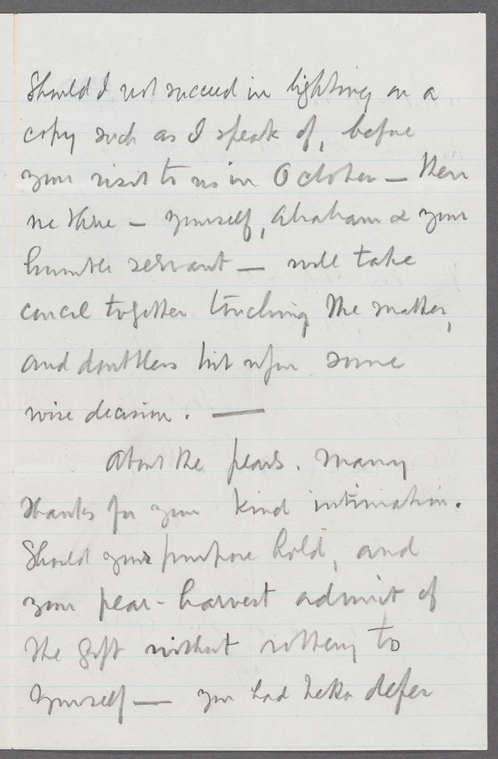 Should I not succeed in lighting on a
copy such as I speak of, before
your visit to us in October — then
we three — yourself, Abraham & your
humble servant — will take
concil together touching the matter,
and doubtless hit upon some
wise decision. —
About the pears. Many
thanks for your kind intimation.
Should your purpose hold, and
your pear-harvest admit of
the gift without to
yourself — you had better defer